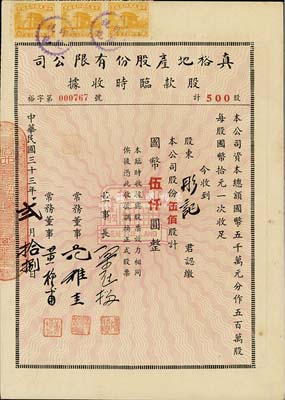 真裕地產股份有限公司
股款臨時收據
裕字第 000767 號 計 500 股
本公司資本總額國幣五千萬元分作五百萬股
每股國幣拾元一次收足
今收到
股東 彤記 君認繳
本公司股份伍佰股計
國幣伍仟圓整
本臨時收據與股票效力相同
俟後憑此收據調換正式股票
董事長
常務董事
常務董事
中華民國三十三年 貳 月 拾捌 日